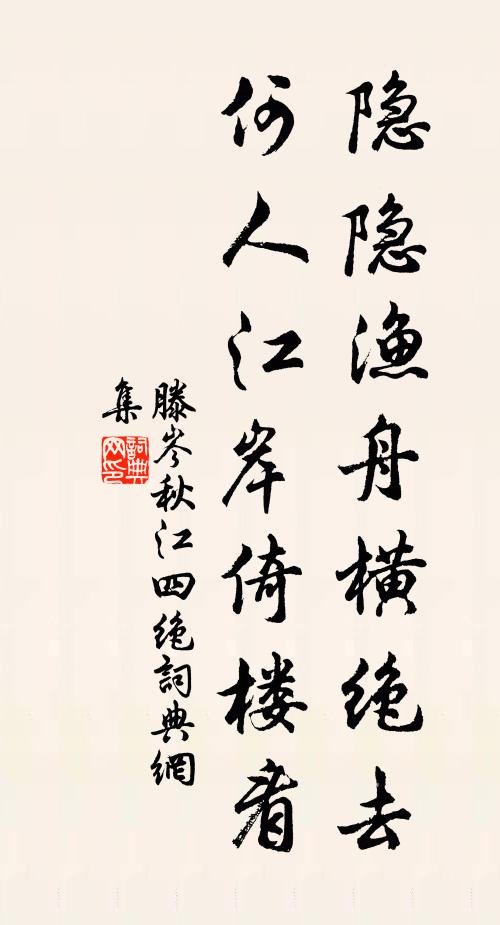 隐隐渔舟横绝去
何人江岸倚楼看
滕岑秋江四绝詞典網
集
詞典网印